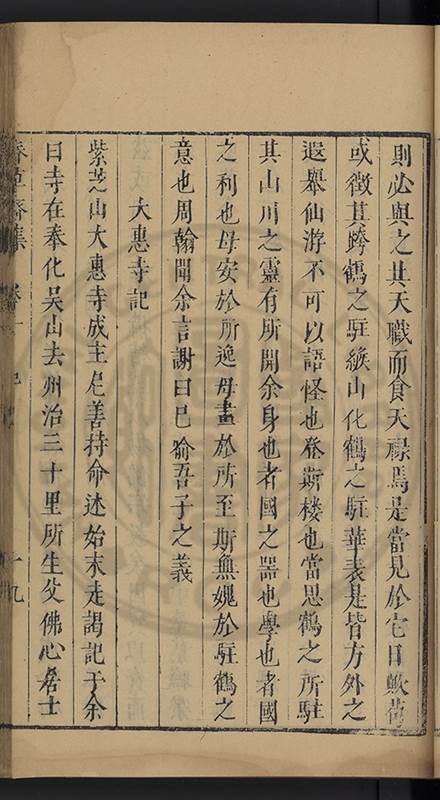 則必與之其天職而食天祿焉是當見於它日歟苟
或徵其跨鶴之駐緱山化鶴之駐華表是皆方外之
遐舉仙游不可以語怪也登斯樓也當思鶴之所駐
其山川之靈有所開余身也者國之器也學也者國
之利也毋安於所逸毋畫於所至斯無媿於駐鶴之
意也周翰聞余言謝曰已喻吾子之義
大惠寺記
紫芝山大惠寺成主尼善持命述始末走謁記于余
曰寺在奉化吳山去州治三十里所生父佛心居士
春草齋集 卷 記 十九